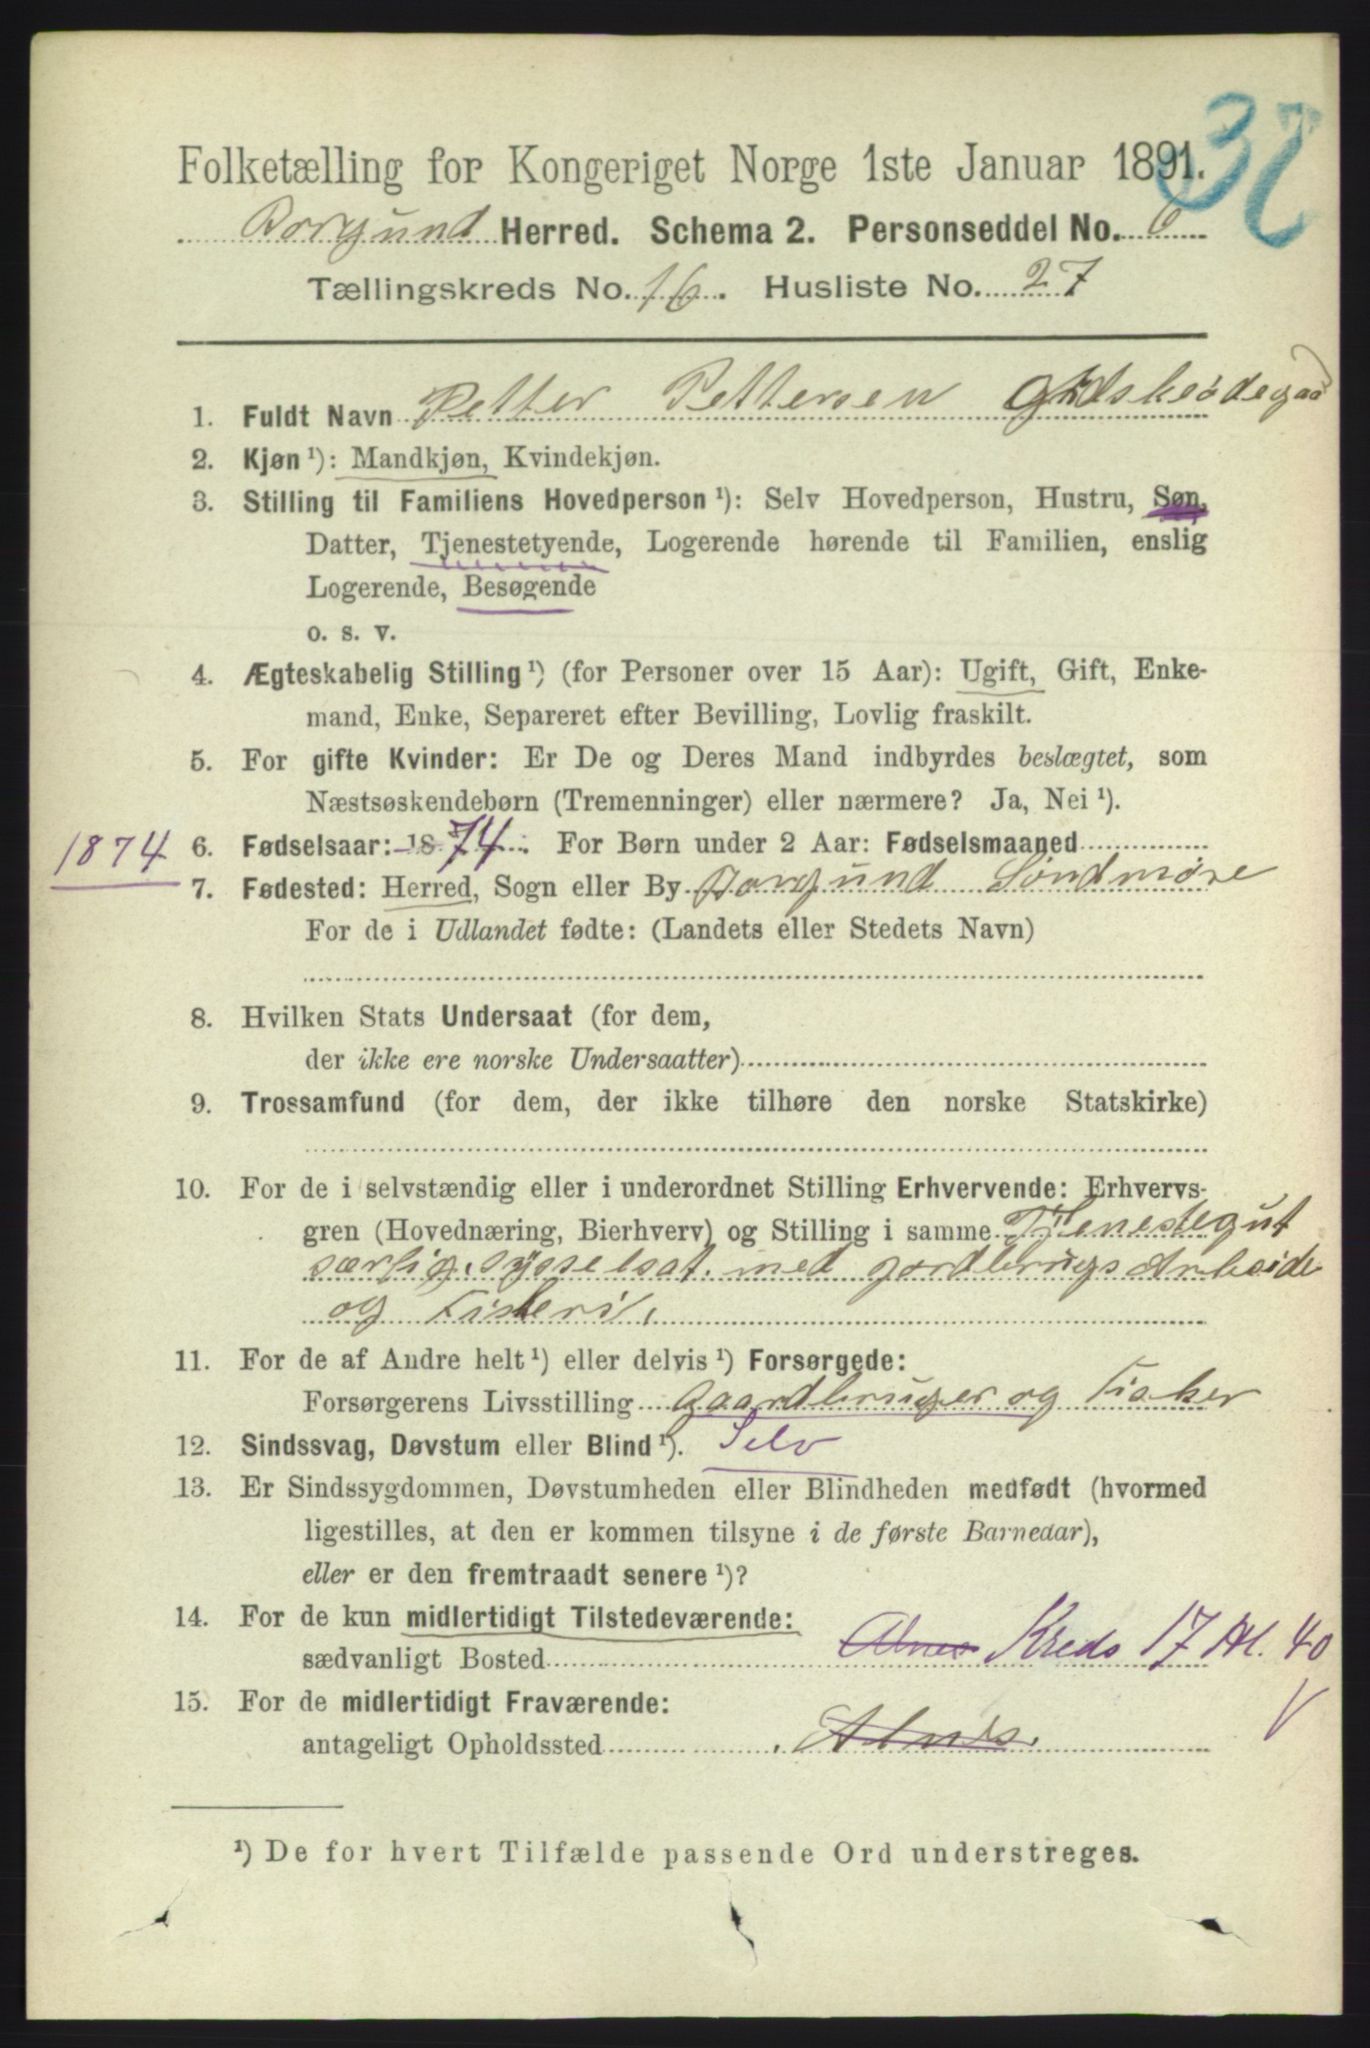 32
Folketælling for Kongeriget Norge 1ste Januar 1891.
Borgund Herred. Schema 2. Personseddel No. 6
Tællingskreds No. 16. Husliste No. 27
1. Fuldt Navn Petter Pettersen
2. Kjøn ¹): Mandkjøn, Kvindekjøn.
3. Stilling til Familiens Hovedperson ¹): Selv Hovedperson, Hustru, Søn,
Datter, Tjenestetyende, Logerende hørende til Familien, enslig
Logerende, Besøgende
o. s. v.
4. Ægteskabelig Stilling ¹) (for Personer over 15 Aar): Ugift, Gift, Enke-
mand, Enke, Separeret efter Bevilling, Lovlig fraskilt.
5. For gifte Kvinder: Er De og Deres Mand indbyrdes beslægtet, som
Næstsøskendebørn (Tremenninger) eller nærmere? Ja, Nei ¹).
1874 6. Fødselsaar: 1874. For Børn under 2 Aar: Fødselsmaaned
7. Fødested: Herred, Sogn eller By Borgund Søndmøre
For de i Udlandet fødte: (Landets eller Stedets Navn)
8. Hvilken Stats Undersaat (for dem,
der ikke ere norske Undersaatter)
9. Trossamfund (for dem, der ikke tilhøre den norske Statskirke)
10. For de i selvstændig eller i underordnet Stilling Erhvervende: Erhvervs-
gren (Hovednæring, Bierhverv) og Stilling i samme Tjenestegut
særlig sysselsat med gordbrugs Arbeide
og Fiskeri.
11. For de af Andre helt ¹) eller delvis ¹) Forsørgede:
Forsørgerens Livsstilling Gaardbruger og Fisker
12. Sindssvag, Døvstum eller Blind ¹). Selv
13. Er Sindssygdommen, Døvstumheden eller Blindheden medfødt (hvormed
ligestilles, at den er kommen tilsyne i de første Barneaar),
eller er den fremtraadt senere ¹)?
14. For de kun midlertidigt Tilstedeværende:
sædvanligt Bosted Alnes Kreds 17 Hl. 40
15. For de midlertidigt Fraværende:
antageligt Opholdssted Alnes.
¹) De for hvert Tilfælde passende Ord understreges.